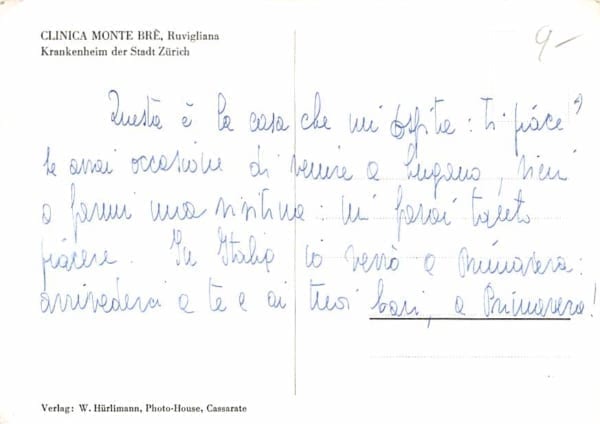 CLINICA MONTE BRÈ, Ruvigliana
Krankenheim der Stadt Zürich
9.-
Questa è la casa che mi ospita: ti piace?
Se avrai occasione di venire a Lugano, vieni
a farmi una visitina: mi farai tanto
piacere. In Italia io verrò a Primavera:
arrivederci a te e ai tuoi cari, a Primavera!
Verlag: W. Hürlimann, Photo-House, Cassarate